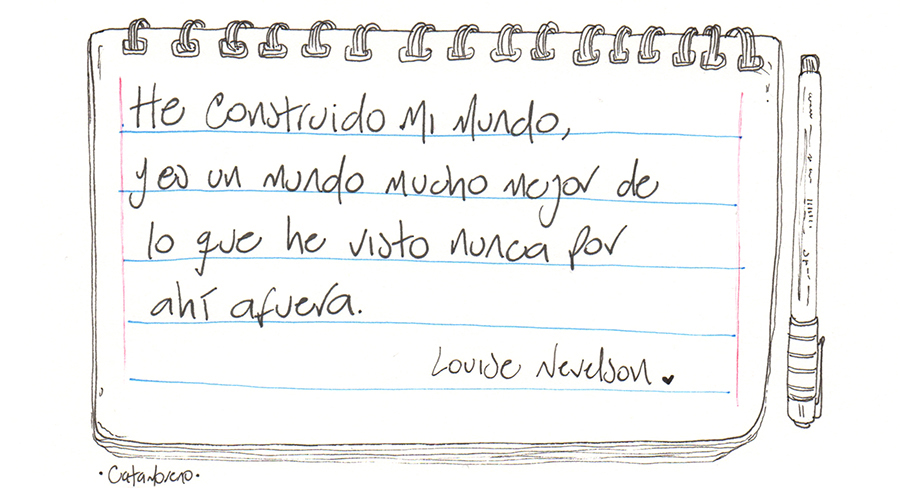 He construido mi mundo,
y es un mundo mucho mejor de
lo que he visto nunca por
ahí afuera.
Louise Nevelson.